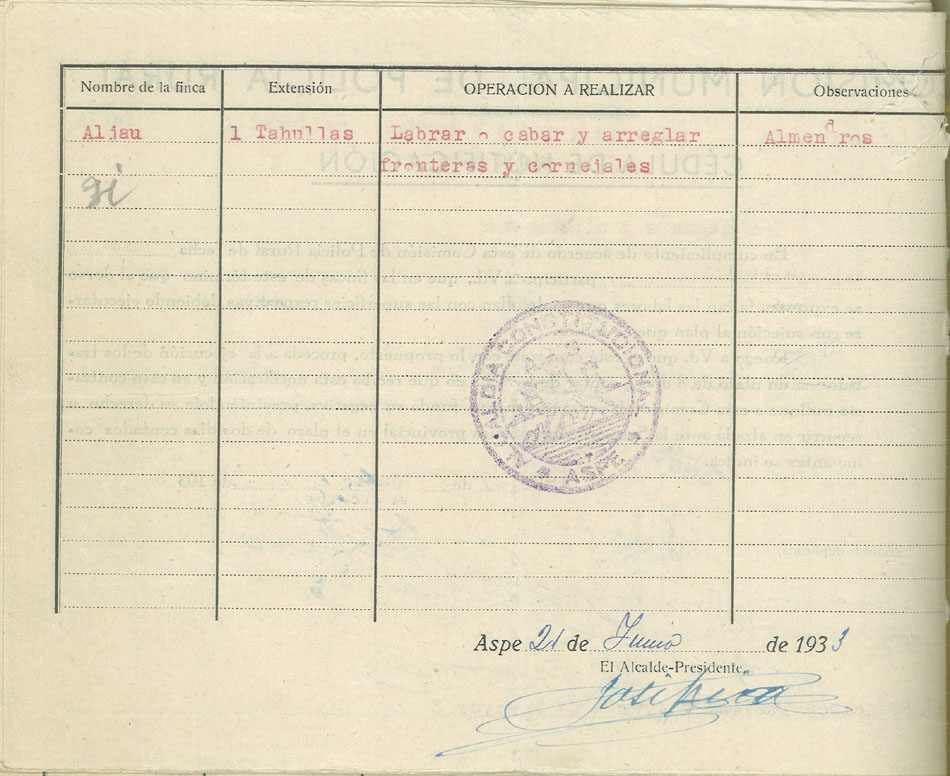 Nombre de la finca Extensión OPERACION A REALIZAR Observaciones
Aljau 1 Tahullas Labrar o cabar y arreglar Almendros
fronteras y cornejales
si
ALCALDIA CONSTITUCIONAL
* ASPE *
Aspe 21 de Junio de 1933
El Alcalde-Presidente,
José